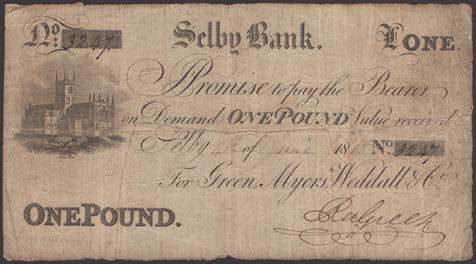 No. 3247 Selby Bank. £ONE.
I Promise to pay the Bearer
on Demand ONE POUND Value received
Selby of 18 No 3247
For Green, Myers, Weddall & Co.
ONE POUND.